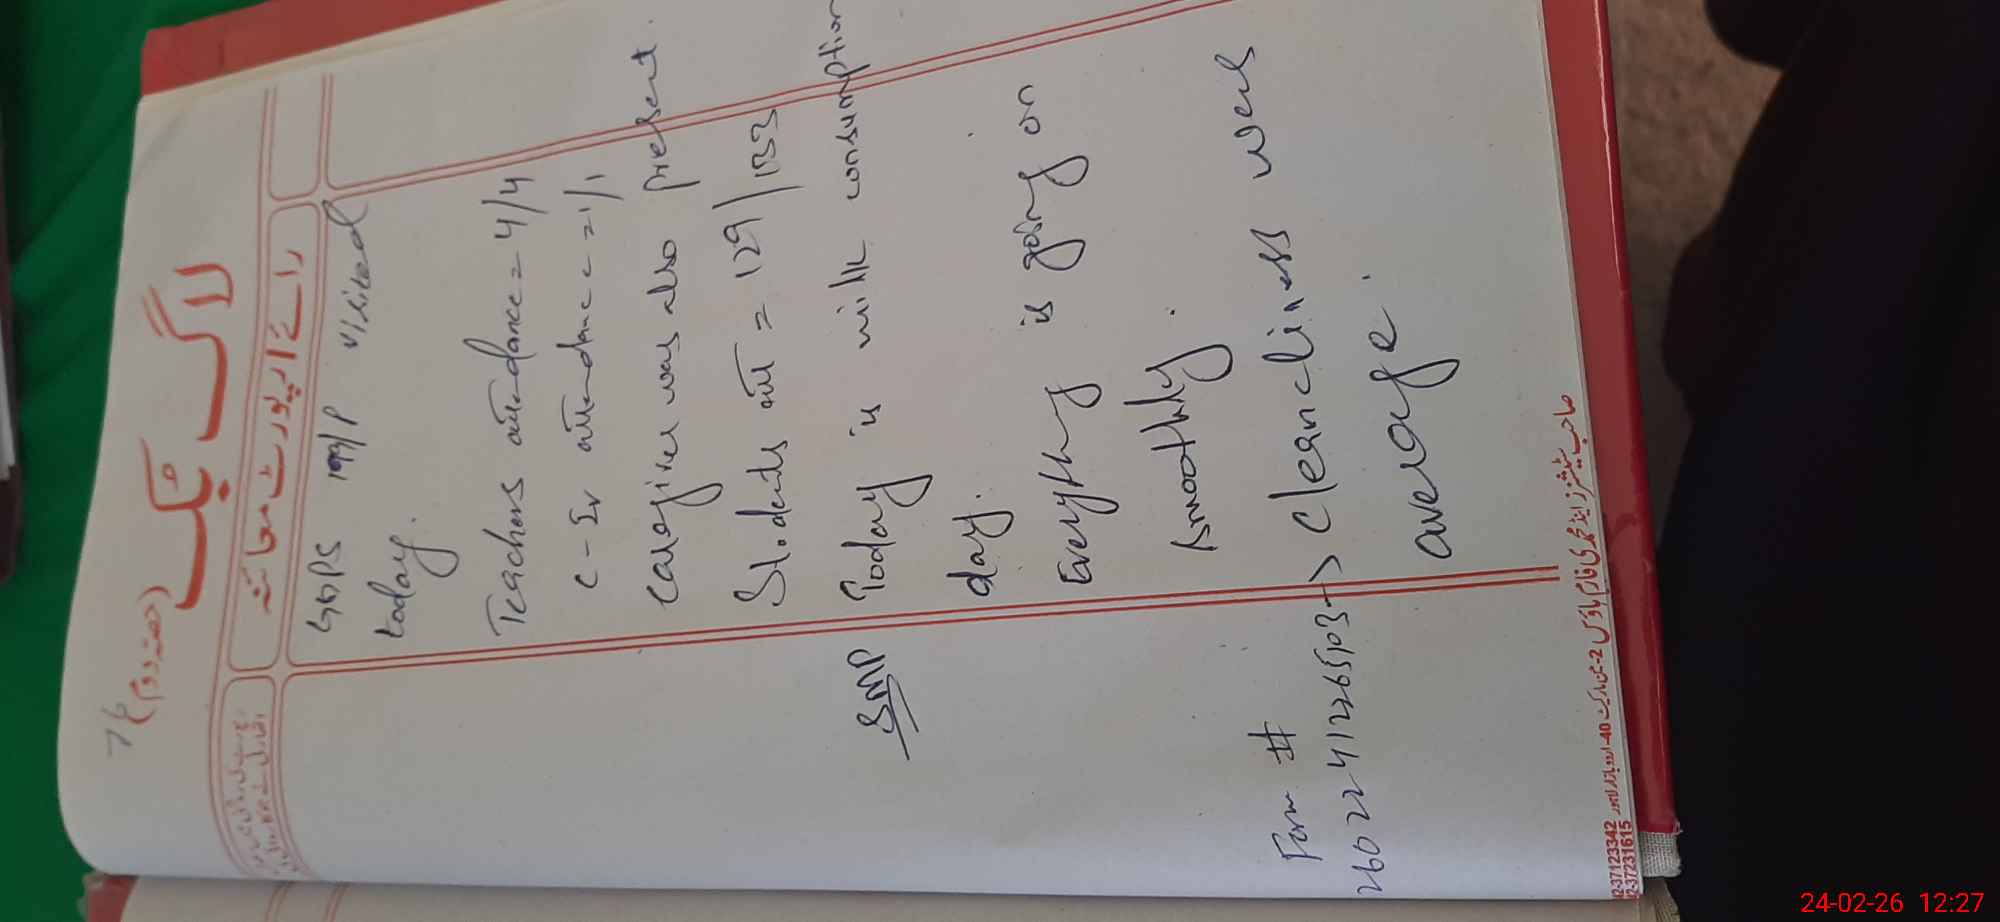 76
(حصہ دوم)
لاگ بک
رائے / رپورٹ معائنہ
GGPS 199/P visited
today.
Teachers attendance = 4/4
C-IV attendance = 1/1
caregiver was also present.
Students att = 129/133
SMP Today is milk consumption
day.
Everything is going on
smoothly.
Form #
260222412265103 → cleanliness was
average.
صاحب پبلشرز اینڈ محمدی فارم ہاؤس 2-کی مارکیٹ 40-اردو بازار لاہور
37123342
37231615
24-02-26 12:27